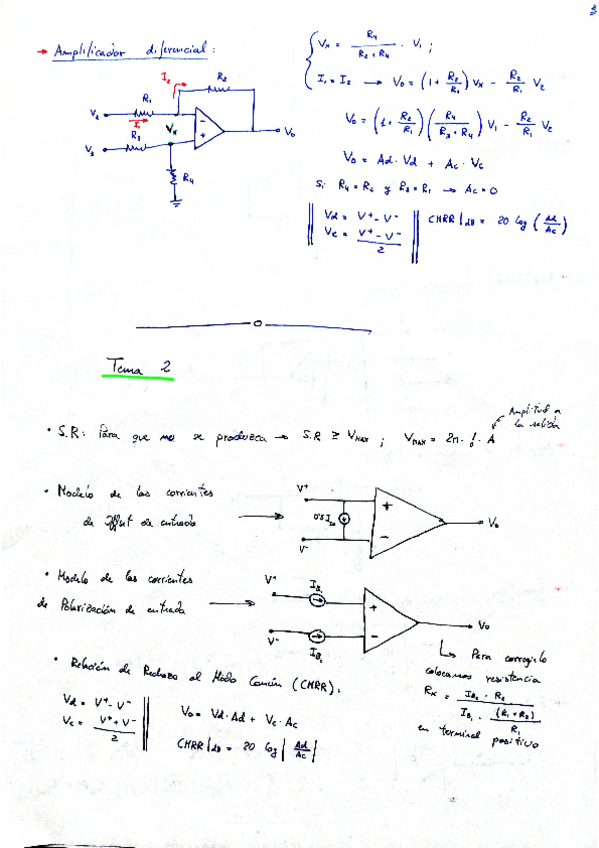 → Amplificador diferencial:
I₂
R₂
R₁
V₂
I₁
Vx
R₃
V₁
V₀
R₄
Vx = R₄ / (R₃ + R₄) · V₁ ;
I₁ = I₂ → V₀ = (1 + R₂/R₁) Vx - R₂/R₁ V₂
V₀ = (1 + R₂/R₁) (R₄ / (R₃ + R₄)) V₁ - R₂/R₁ V₂
V₀ = Ad · Vd + Ac · Vc
Si R₄ = R₂ y R₃ = R₁ → Ac = 0
Vd = V⁺ - V⁻
Vc = (V⁺ - V⁻) / 2
CMRR|dB = 20 log (Ad/Ac)
Tema 2
• S.R: Para que no se produzca → S.R ≥ VMAX ; VMAX = 2π · f · A
Amplitud a
la salida
• Modelo de las corrientes
de Offset de entrada
V⁺
0.5 I
V⁻
+
-
V₀
• Modelo de las corrientes
de Polarización de entrada
V⁺
IB₁
V⁻
IB₂
+
-
V₀
Para corregirlo
colocamos resistencia
Rx = IB₂ · R₂ / (IB₁ · (R₁ + R₂)/R₁)
en terminal positivo
• Relación de Rechazo al Modo Común (CMRR):
Vd = V⁺ - V⁻
Vc = (V⁺ + V⁻) / 2
V₀ = Vd · Ad + Vc · Ac
CMRR|dB = 20 log |Ad/Ac|